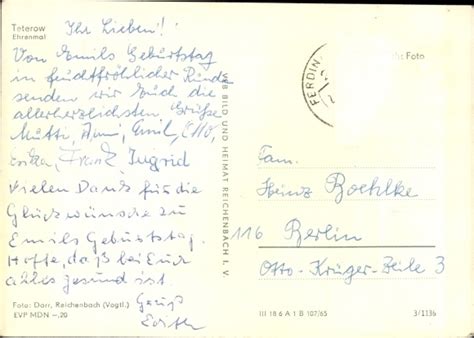 Teterow
Ehrenmal
Ihr Lieben!
Von Emils Geburtstag
in feuchtfröhlicher Runde
senden wir Euch die
allerherzlichsten Grüße
Mutti, Emil, Otto,
Erika, Franz, Ingrid
Vielen Dank für die
Glückwünsche zu
Emils Geburtstag.
Hoffe, daß bei Euch
alles gesund ist.
Edith
Foto: Darr, Reichenbach (Vogtl.)
EVP MDN —,20
BILD UND HEIMAT REICHENBACH I. V.
FERDIN
Foto
Fam.
Heinz Boehlke
116 Berlin
Otto-Krüger-Zeile 3
III 18 6 A 1 B 107/65
3/1136